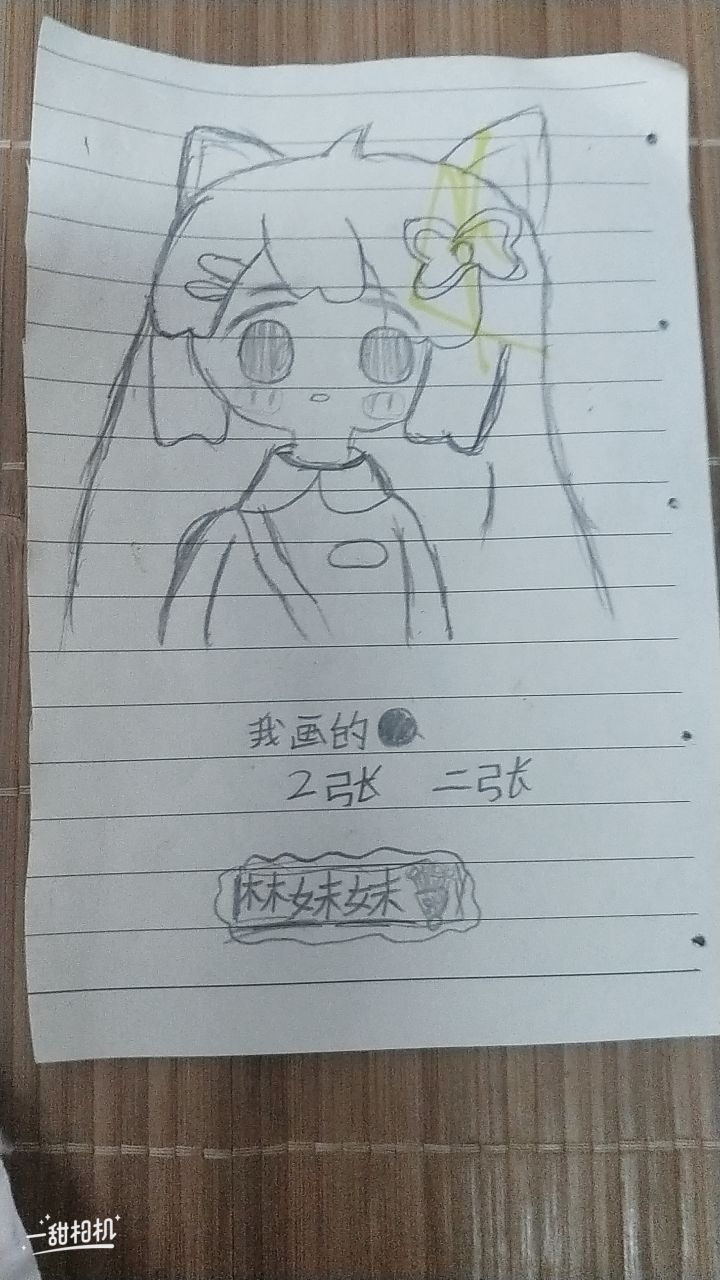 我画的
2张 二张
林妹妹
一甜相机